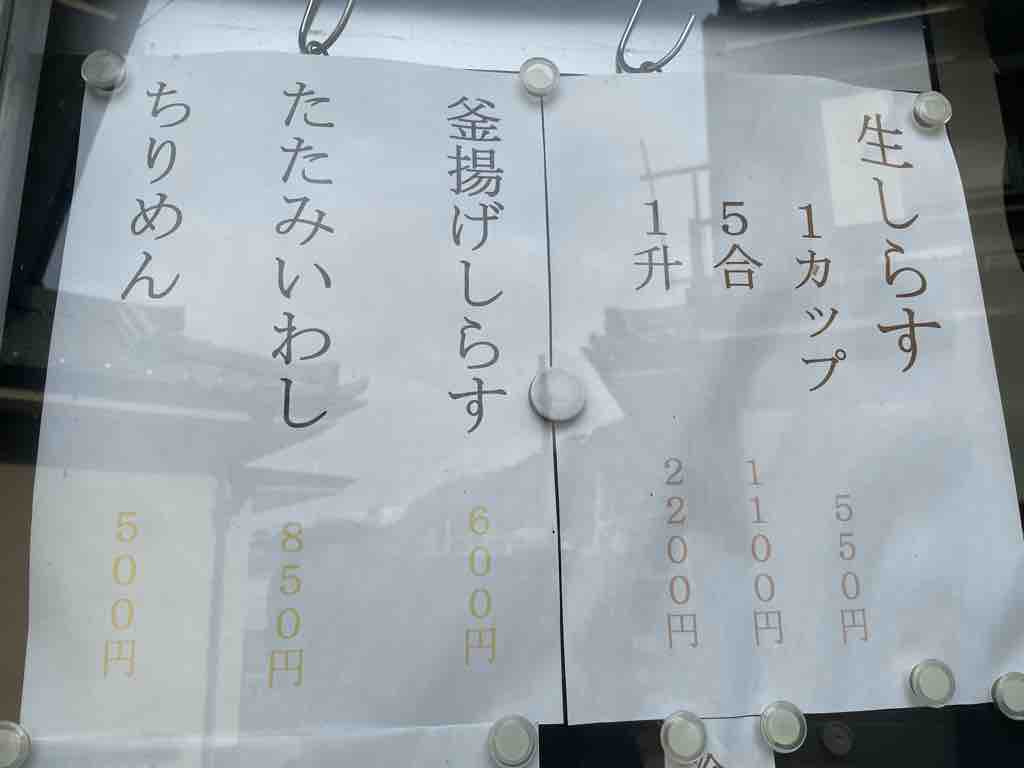 生しらす
1カップ 550円
5合 1100円
1升 2200円
釜揚げしらす 600円
たたみいわし 850円
ちりめん 500円